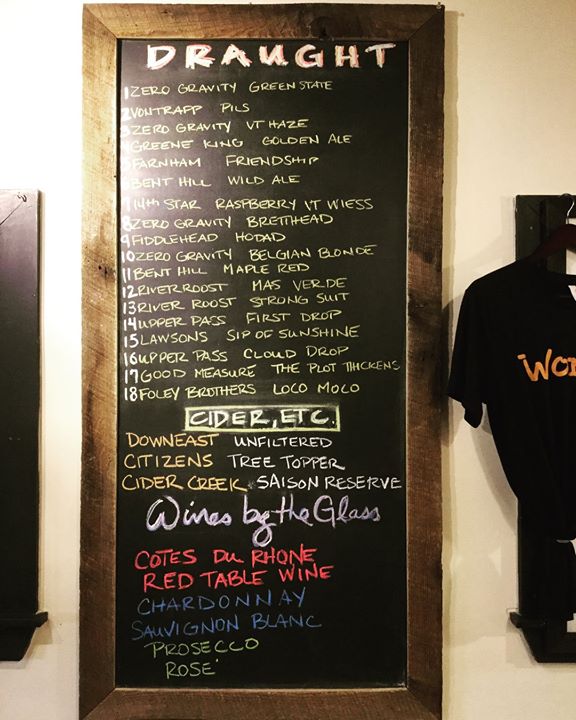 DRAUGHT
1 ZERO GRAVITY GREEN STATE
2 VONTRAPP PILS
3 ZERO GRAVITY VT HAZE
4 GREENE KING GOLDEN ALE
5 FARNHAM FRIENDSHIP
6 BENT HILL WILD ALE
7 14th STAR RASPBERRY VT WIESS
8 ZERO GRAVITY BRETTHEAD
9 FIDDLEHEAD HODAD
10 ZERO GRAVITY BELGIAN BLONDE
11 BENT HILL MAPLE RED
12 RIVER ROOST MAS VERDE
13 RIVER ROOST STRONG SUIT
14 UPPER PASS FIRST DROP
15 LAWSONS SIP OF SUNSHINE
16 UPPER PASS CLOUD DROP
17 GOOD MEASURE THE PLOT THICKENS
18 FOLEY BROTHERS LOCO MOCO
CIDER, ETC.
DOWNEAST UNFILTERED
CITIZENS TREE TOPPER
CIDER CREEK SAISON RESERVE
Wines by the Glass
COTES DU RHONE
RED TABLE WINE
CHARDONNAY
SAUVIGNON BLANC
PROSECCO
ROSE'